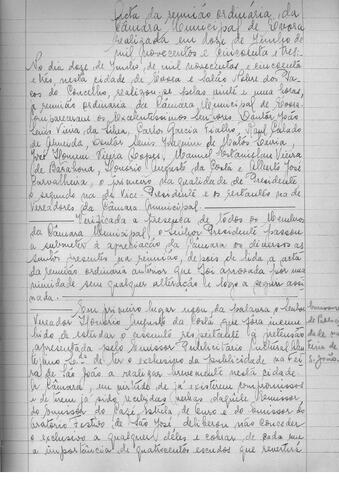 Acta da reunião ordinária da
Câmara Municipal de Évora
realizada em doze de Junho de
mil novecentos e cincoenta e três.
No dia doze de Junho, de mil novecentos e cincoenta
e três, nesta cidade de Évora e salão Nobre dos Pa-
ços do Concelho, realizou-se pelas vinte e uma horas,
a reunião ordinária da Câmara Municipal de Évora.
Compareceram os Excelentíssimos Senhores, Doutor João
Luís Vieira da Silva, Carlos Garcia Fialho, Raul Calado
de Almeida, Doutor Luís Joaquim de Matos
José Homem Vieira Lopes, Manuel Estanislau Vieira
de Barahona, Honório Augusto da Costa e Alberto José
Carvalheira, o primeiro na qualidade de Presidente
o segundo na de Vice-Presidente e os restantes na de
Vereadores da Câmara Municipal.
Verificada a presença de todos os Membros
da Câmara Municipal, o Senhor Presidente passou
a submeter à apreciação da Câmara os diversos as-
suntos presentes na reunião, depois de lida a acta
da reunião ordinária anterior que foi aprovada por una-
nimidade sem qualquer alteração e logo a seguir assi-
nada.
Em primeiro lugar usou da palavra o Senhor
Vereador Honório Augusto da Costa que fora incum-
bido de estudar o assunto respeitante à pretensão
apresentada pelo Emissor Publicitário
o exclusivo da publicidade na Fei-
ra de São João a realizar nesta cidade.
A Câmara, em virtude de já existirem compromissos
e de terem já sido recebidas
do Emissor do
São José, deliberou não conceder
o exclusivo a qualquer deles e cobrar de cada um
a importância de quatrocentos escudos que reverterá
de Publici-
dade na
Feira de
S. João.